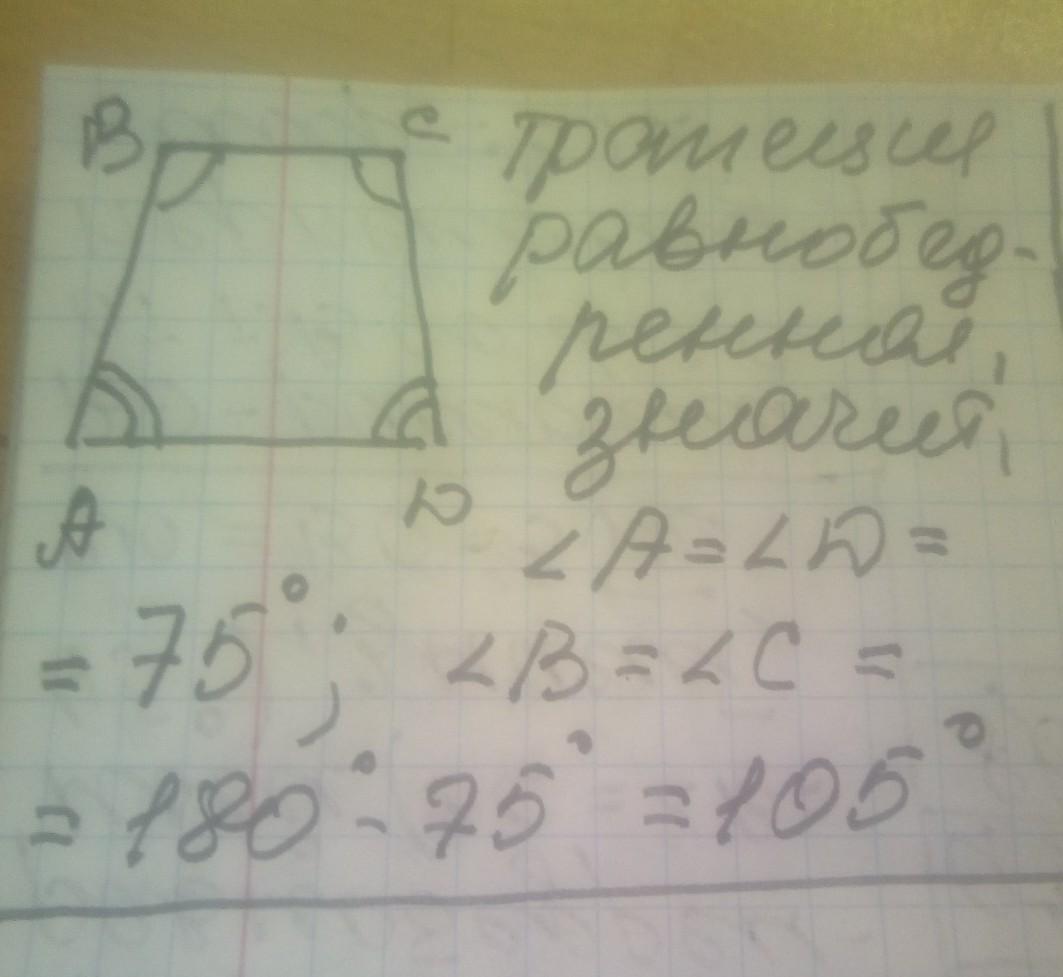 B
C
трапеция
равнобед-
ренная,
значит,
A
D
∠A=∠D=
= 75°; ∠B = ∠C =
= 180° - 75° = 105°